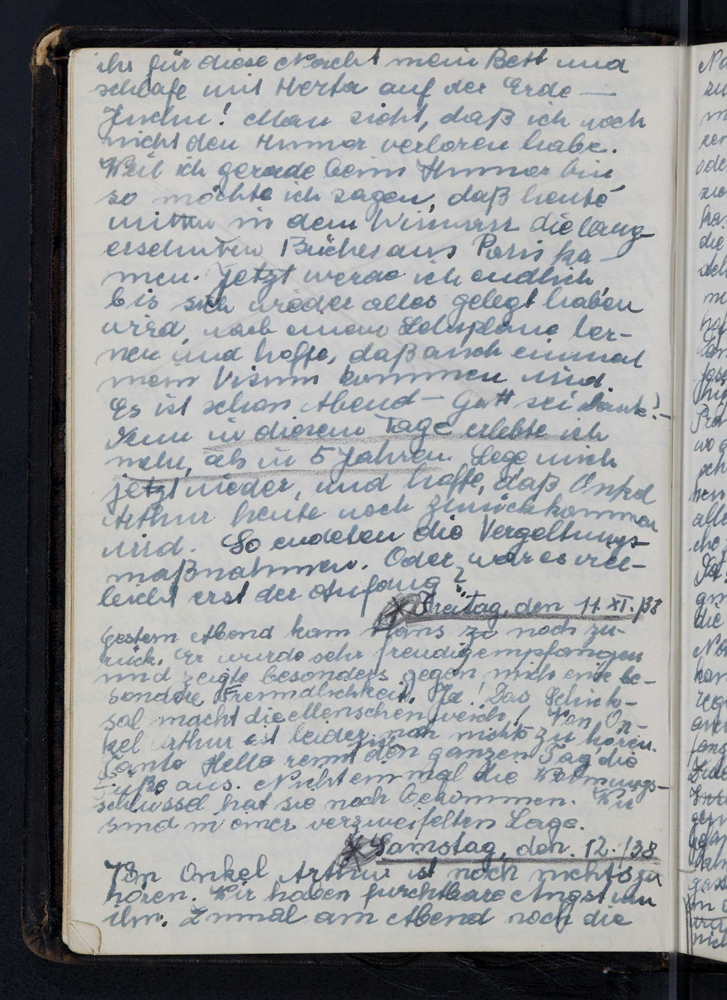 ihr für diese Nacht mein Bett und
schlafe mit Herta auf der Erde —
Juchu! Man sieht, daß ich noch
nicht den Humor verloren habe.
Weil ich gerade beim Humor bin,
so möchte ich sagen, daß heute
mitten in dem Wirrwarr die lang
ersehnten Bücher aus Paris ka-
men. Jetzt werde ich endlich,
bis sich wieder alles gelegt haben
wird, nach einem Lehrplane ler-
nen und hoffe, daß auch einmal
mein Visum kommen wird.
Es ist schon Abend – Gott sei Dank! –
Denn in diesem Tage erlebte ich
mehr, als in 5 Jahren. Lege mich
jetzt nieder, und hoffe, daß Onkel
Arthur heute noch zurückkommen
wird. So endeten die Vergeltungs-
maßnahmen. Oder, war es viel-
leicht erst der Anfang?
Freitag, den 11. XI. /38
Gestern Abend kam Hans noch zu-
rück. Er wurde sehr freudig empfangen
und zeigte besonders gegen mich eine be-
sondere Freundlichkeit. Ja! Das Schick-
sal macht die Menschen weich! Von On-
kel Arthur ist leider noch nichts zu hören.
Tante Hella rennt den ganzen Tag die
Füße aus. Nicht einmal die Wohnungs-
schlüssel hat sie noch bekommen. Wir
sind in einer verzweifelten Lage.
Samstag, den. 12. /38
Von Onkel Arthur ist noch nichts zu
hören. Wir haben furchtbare Angst um
ihn. Zumal am Abend noch die